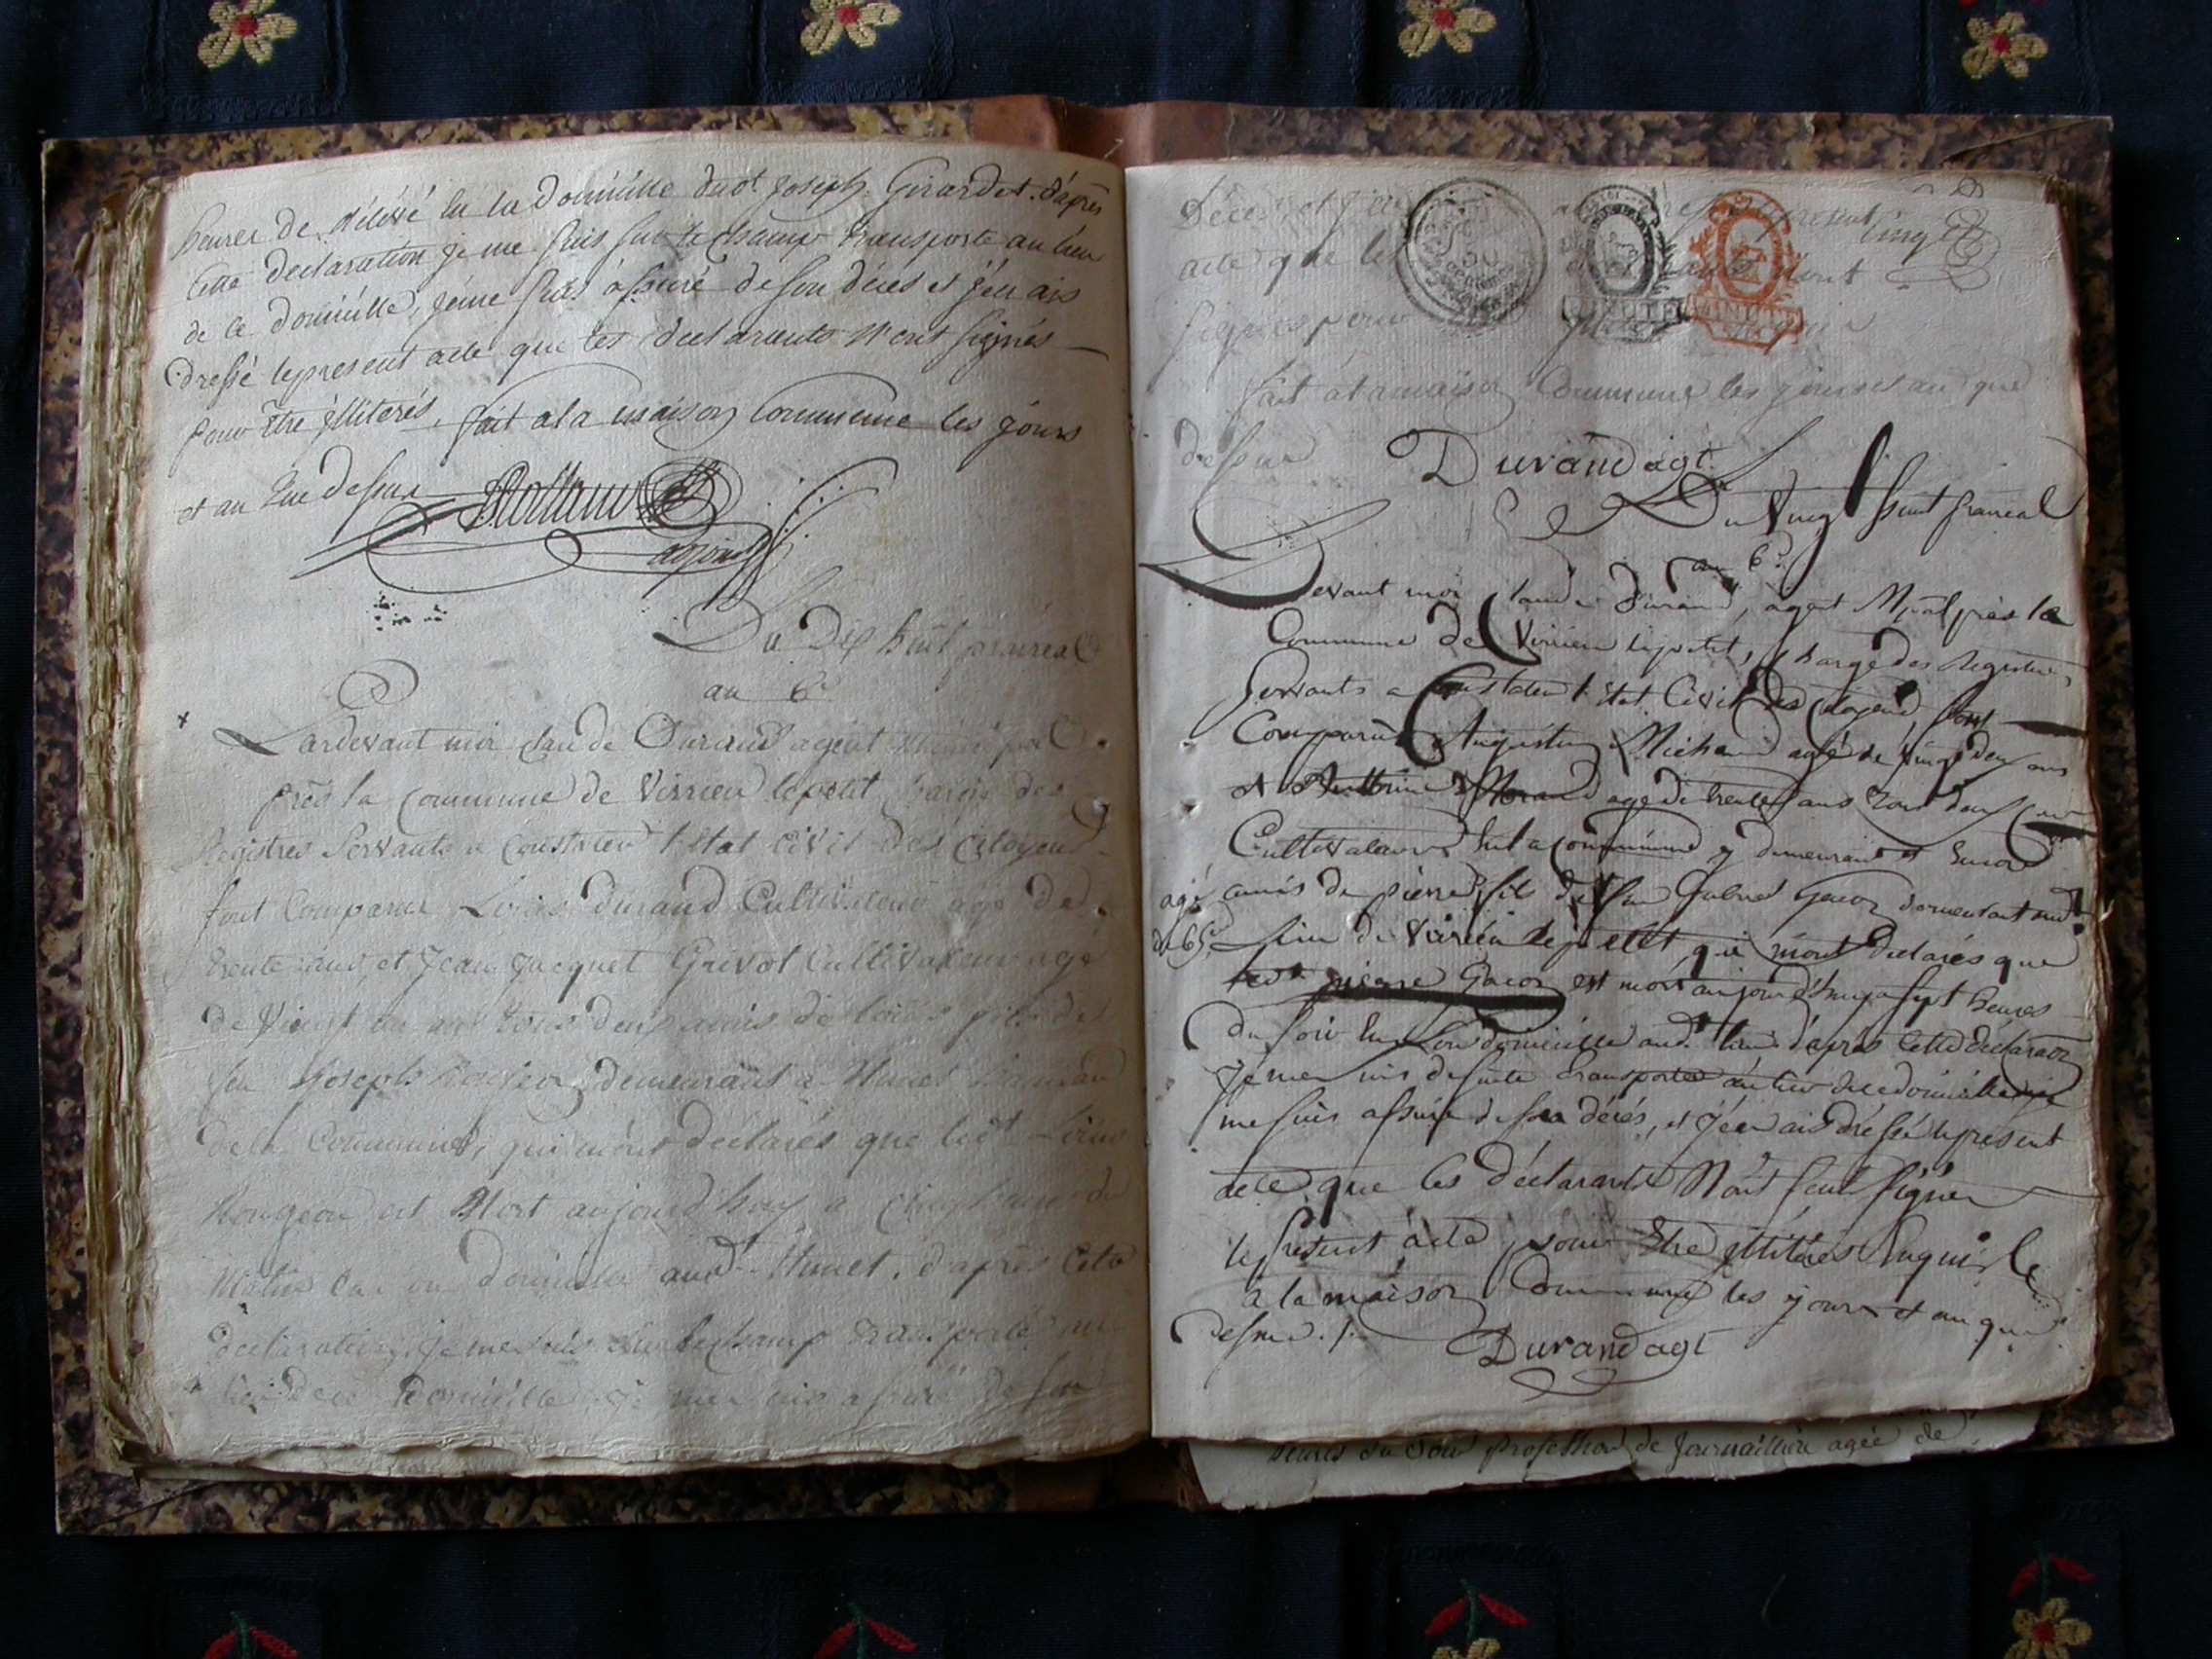 heures de relevé en la domicille dudt Joseph Girardet. d'après
cette declaration je me suis sur le champ transporte au lieu
de ce domicille, jeme suis assuré de son décés et j'en ais
dressé lepresent acte que les declarants n'ont signés
pour être illiterés, fait ala maison Commune les jours
et an que dessus
adjoint
Du Dix huit prairéal
an 6e
Pardevant moi Claude Durand agent municipal
près la commune de Virieu lepetit chargé des
Registres Servants a Constater l'état civil des Citoyens
sont Comparus Louis durand Cultivateur agé de
trente ans, et Jean Jacquet Grivot Cultivateur agé
de Vingt un ans tous deux amis de Louis fils de
feu Joseph demeurant a Munet
dela Commune, qui m'ont déclarés que ledt Louis
Rongeon est Mort aujourd'huy a Cinq heures du
Matin en son domicille aud. Munet. d'après cette
declaration, je me suis sur lechamp transporté au
lieu de ce domicille, je me suis assuré de son
Décés et j'en ai dressé le present
acte que les n'ont
signés pour
cinq
fait a la maison Commune les jours et an que
dessus
Durand agt
Du Vingt huit prairéal
an 6e
Devant moi Claude Durand, agent Mpal près la
Commune de Virieu lepetit, chargé des Registres
Servants a Constater l'état Civil des Citoyens, sont
Comparus Augustin Michaud agé de vingt deux ans
et Morand agé de trente ans tous deux
Cultivateurs en la Commune y demeurant et encore
agé amis de pierre fils de feu Gabriel Gacon demeurant aud.
de 65 lieu de Virieu lepetit, qui m'ont declarés que
ledt pierre Gacon est mort aujourd'huy a sept heures
du soir en son domicille aud. lieu d'après cette déclaraon
Jéme suis de suite transporté au lieu de ce domicille et je
me suis assuré de son décés, et j'en ais dréssé lepresent
acte que les déclarants N'ont seut signer
le present acte pour être illitéres Enquis
a la maison Commune les jours et an que
dessus ./.
Durand agt
heures du Soir profession de Journaillière agée de